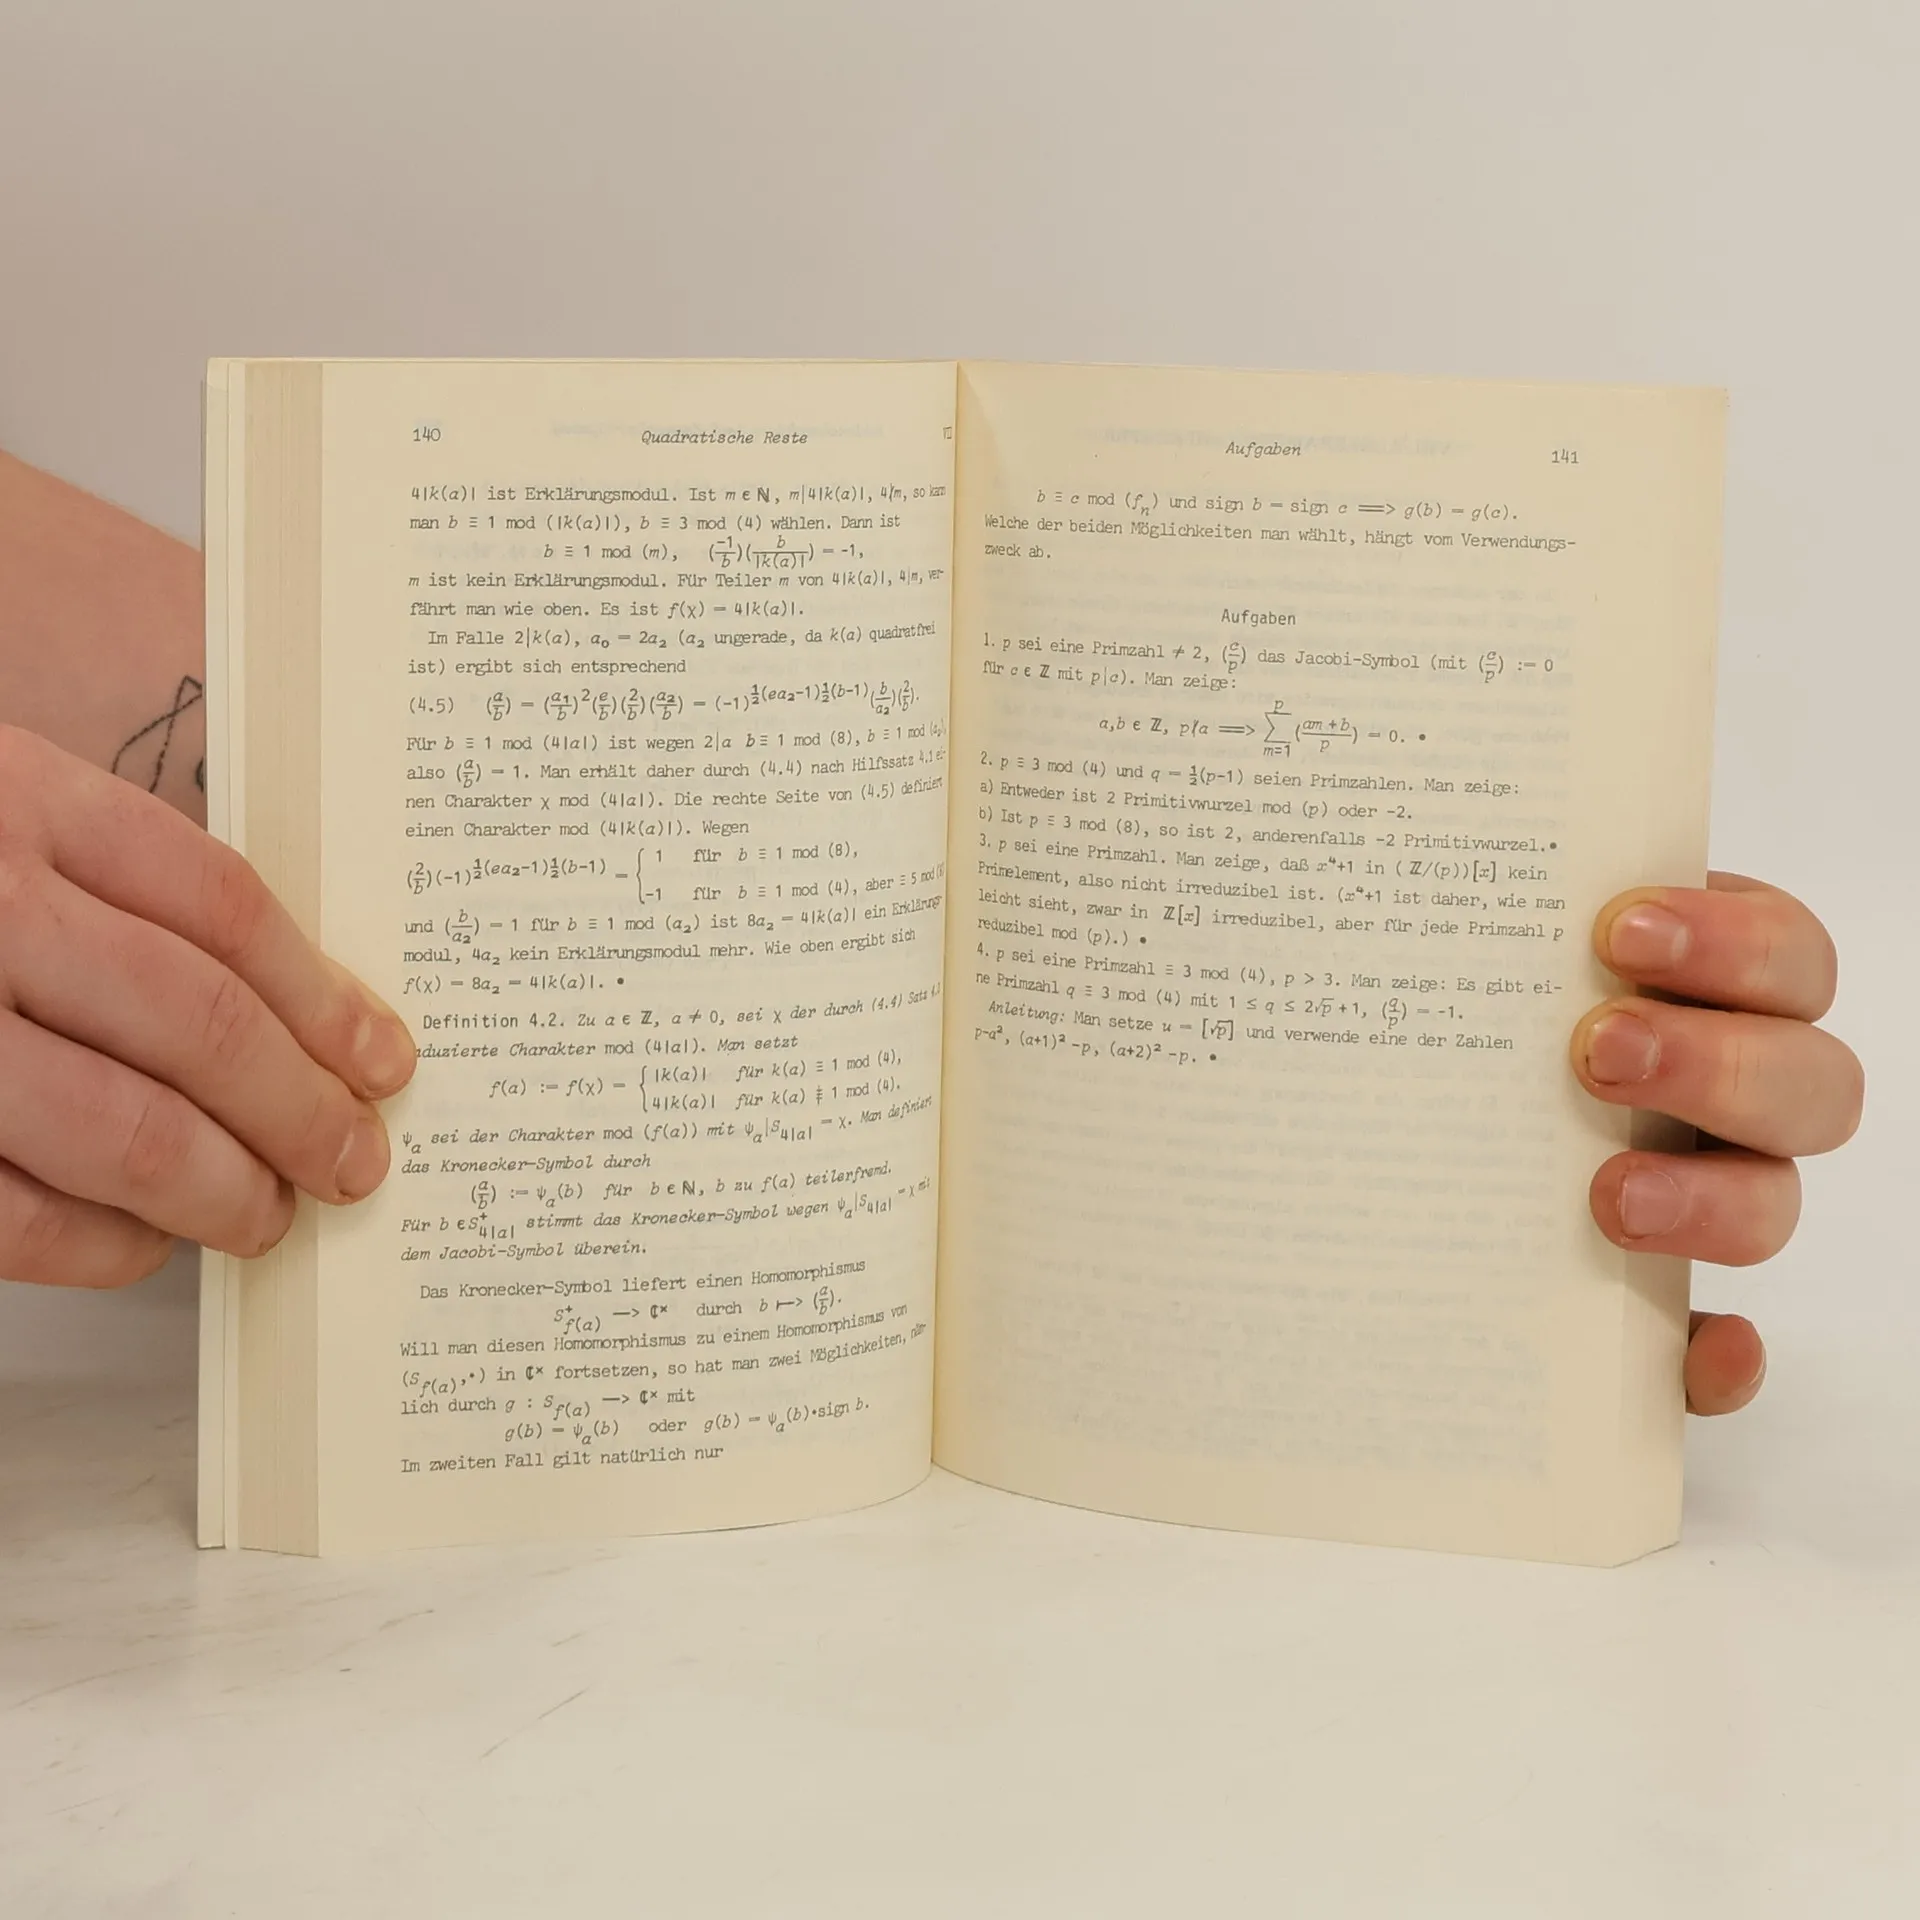 140 Quadratische Reste VII
4|k(a)| ist Erklärungsmodul. Ist m ∈ ℕ, m|4|k(a)|, 4∤m, so kann
man b ≡ 1 mod (|k(a)|), b ≡ 3 mod (4) wählen. Dann ist
b ≡ 1 mod (m), (-1/b)(b/|k(a)|) = -1,
m ist kein Erklärungsmodul. Für Teiler m von 4|k(a)|, 4|m, ver-
fährt man wie oben. Es ist f(χ) = 4|k(a)|.
Im Falle 2|k(a), a₀ = 2a₂ (a₂ ungerade, da k(a) quadratfrei
ist) ergibt sich entsprechend
(4.5) (a/b) = (a₁/b)²(e/b)(2/b)(a₂/b) = (-1)^½(ea₂-1)½(b-1)(b/a₂)(2/b).
Für b ≡ 1 mod (4|a|) ist wegen 2|a b ≡ 1 mod (8), b ≡ 1 mod (a₂),
also (a/b) = 1. Man erhält daher durch (4.4) nach Hilfssatz 4.1 ei-
nen Charakter χ mod (4|a|). Die rechte Seite von (4.5) definiert
einen Charakter mod (4|k(a)|). Wegen
(2/b)(-1)^½(ea₂-1)½(b-1) = { 1 für b ≡ 1 mod (8),
-1 für b ≡ 1 mod (4), aber ≡ 5 mod (8)
und (b/a₂) = 1 für b ≡ 1 mod (a₂) ist 8a₂ = 4|k(a)| ein Erklärungs-
modul, 4a₂ kein Erklärungsmodul mehr. Wie oben ergibt sich
f(χ) = 8a₂ = 4|k(a)|. •
Definition 4.2. Zu a ∈ ℤ, a ≠ 0, sei χ der durch (4.4) Satz 4.1
nduzierte Charakter mod (4|a|). Man setzt
f(a) := f(χ) = { |k(a)| für k(a) ≡ 1 mod (4),
4|k(a)| für k(a) ≢ 1 mod (4).
ψₐ sei der Charakter mod (f(a)) mit ψₐ|S₄|ₐ| = χ. Man definiert
das Kronecker-Symbol durch
(a/b) := ψₐ(b) für b ∈ ℕ, b zu f(a) teilerfremd.
Für b ∈ S⁺₄|ₐ| stimmt das Kronecker-Symbol wegen ψₐ|S₄|ₐ| = χ mit
dem Jacobi-Symbol überein.
Das Kronecker-Symbol liefert einen Homomorphismus
S⁺f(a) —> ℂ× durch b ↦ (a/b).
Will man diesen Homomorphismus zu einem Homomorphismus von
(Sf(a),•) in ℂ× fortsetzen, so hat man zwei Möglichkeiten, näm-
lich durch g : Sf(a) —> ℂ× mit
g(b) = ψₐ(b) oder g(b) = ψₐ(b)•sign b.
Im zweiten Fall gilt natürlich nur
Aufgaben 141
b ≡ c mod (fₙ) und sign b = sign c ==> g(b) = g(c).
Welche der beiden Möglichkeiten man wählt, hängt vom Verwendungs-
zweck ab.
Aufgaben
1. p sei eine Primzahl ≠ 2, (c/p) das Jacobi-Symbol (mit (c/p) := 0
für c ∈ ℤ mit p|c). Man zeige:
a,b ∈ ℤ, p∤a ==> ∑_{m=1}^{p} (am+b/p) = 0. •
2. p ≡ 3 mod (4) und q = ½(p-1) seien Primzahlen. Man zeige:
a) Entweder ist 2 Primitivwurzel mod (p) oder -2.
b) Ist p ≡ 3 mod (8), so ist 2, anderenfalls -2 Primitivwurzel. •
3. p sei eine Primzahl. Man zeige, daß x⁴+1 in (ℤ/(p))[x] kein
Primelement, also nicht irreduzibel ist. (x⁴+1 ist daher, wie man
leicht sieht, zwar in ℤ[x] irreduzibel, aber für jede Primzahl p
reduzibel mod (p).) •
4. p sei eine Primzahl ≡ 3 mod (4), p > 3. Man zeige: Es gibt ei-
ne Primzahl q ≡ 3 mod (4) mit 1 ≤ q ≤ 2√p + 1, (q/p) = -1.
Anleitung: Man setze u = [√p] und verwende eine der Zahlen
p-a², (a+1)²-p, (a+2)²-p. •